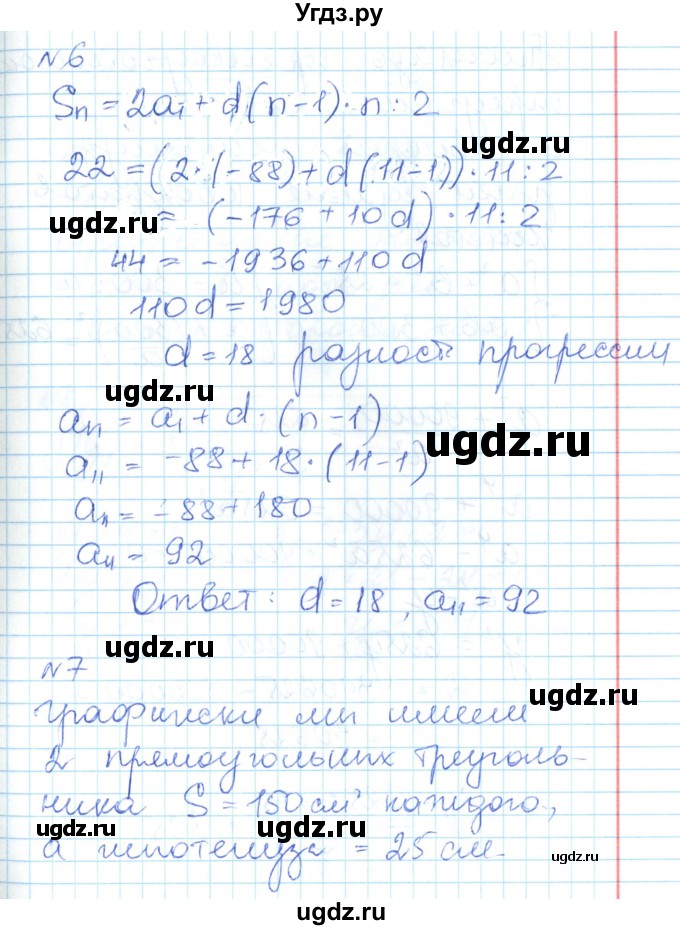 Угдз.ру
№6
Sn = 2a₁ + d(n-1)·n:2
ugdz.ru
22 = (2·(-88) + d(11-1))·11:2
ugdz.ru = (-176 + 10d)·11:2
44 = -1936 + 110d
110d = 1980
ugdz.ru
d = 18 разность прогрессии
ugdz.ru
an = a₁ + d·(n-1)
ugdz.ru
a₁₁ = -88 + 18·(11-1)
a₁₁ = -88 + 180
a₁₁ = 92
ugdz.ru
Ответ: d = 18, a₁₁ = 92
ugdz.ru
№7
ugdz.ru
Графически мы имеем
2 прямоугольных треуголь-
ника S = 150 см² каждого,
ugdz.ru ugdz.ru
а гипотенуза = 25 см.
ugdz.ru
ugdz.ru